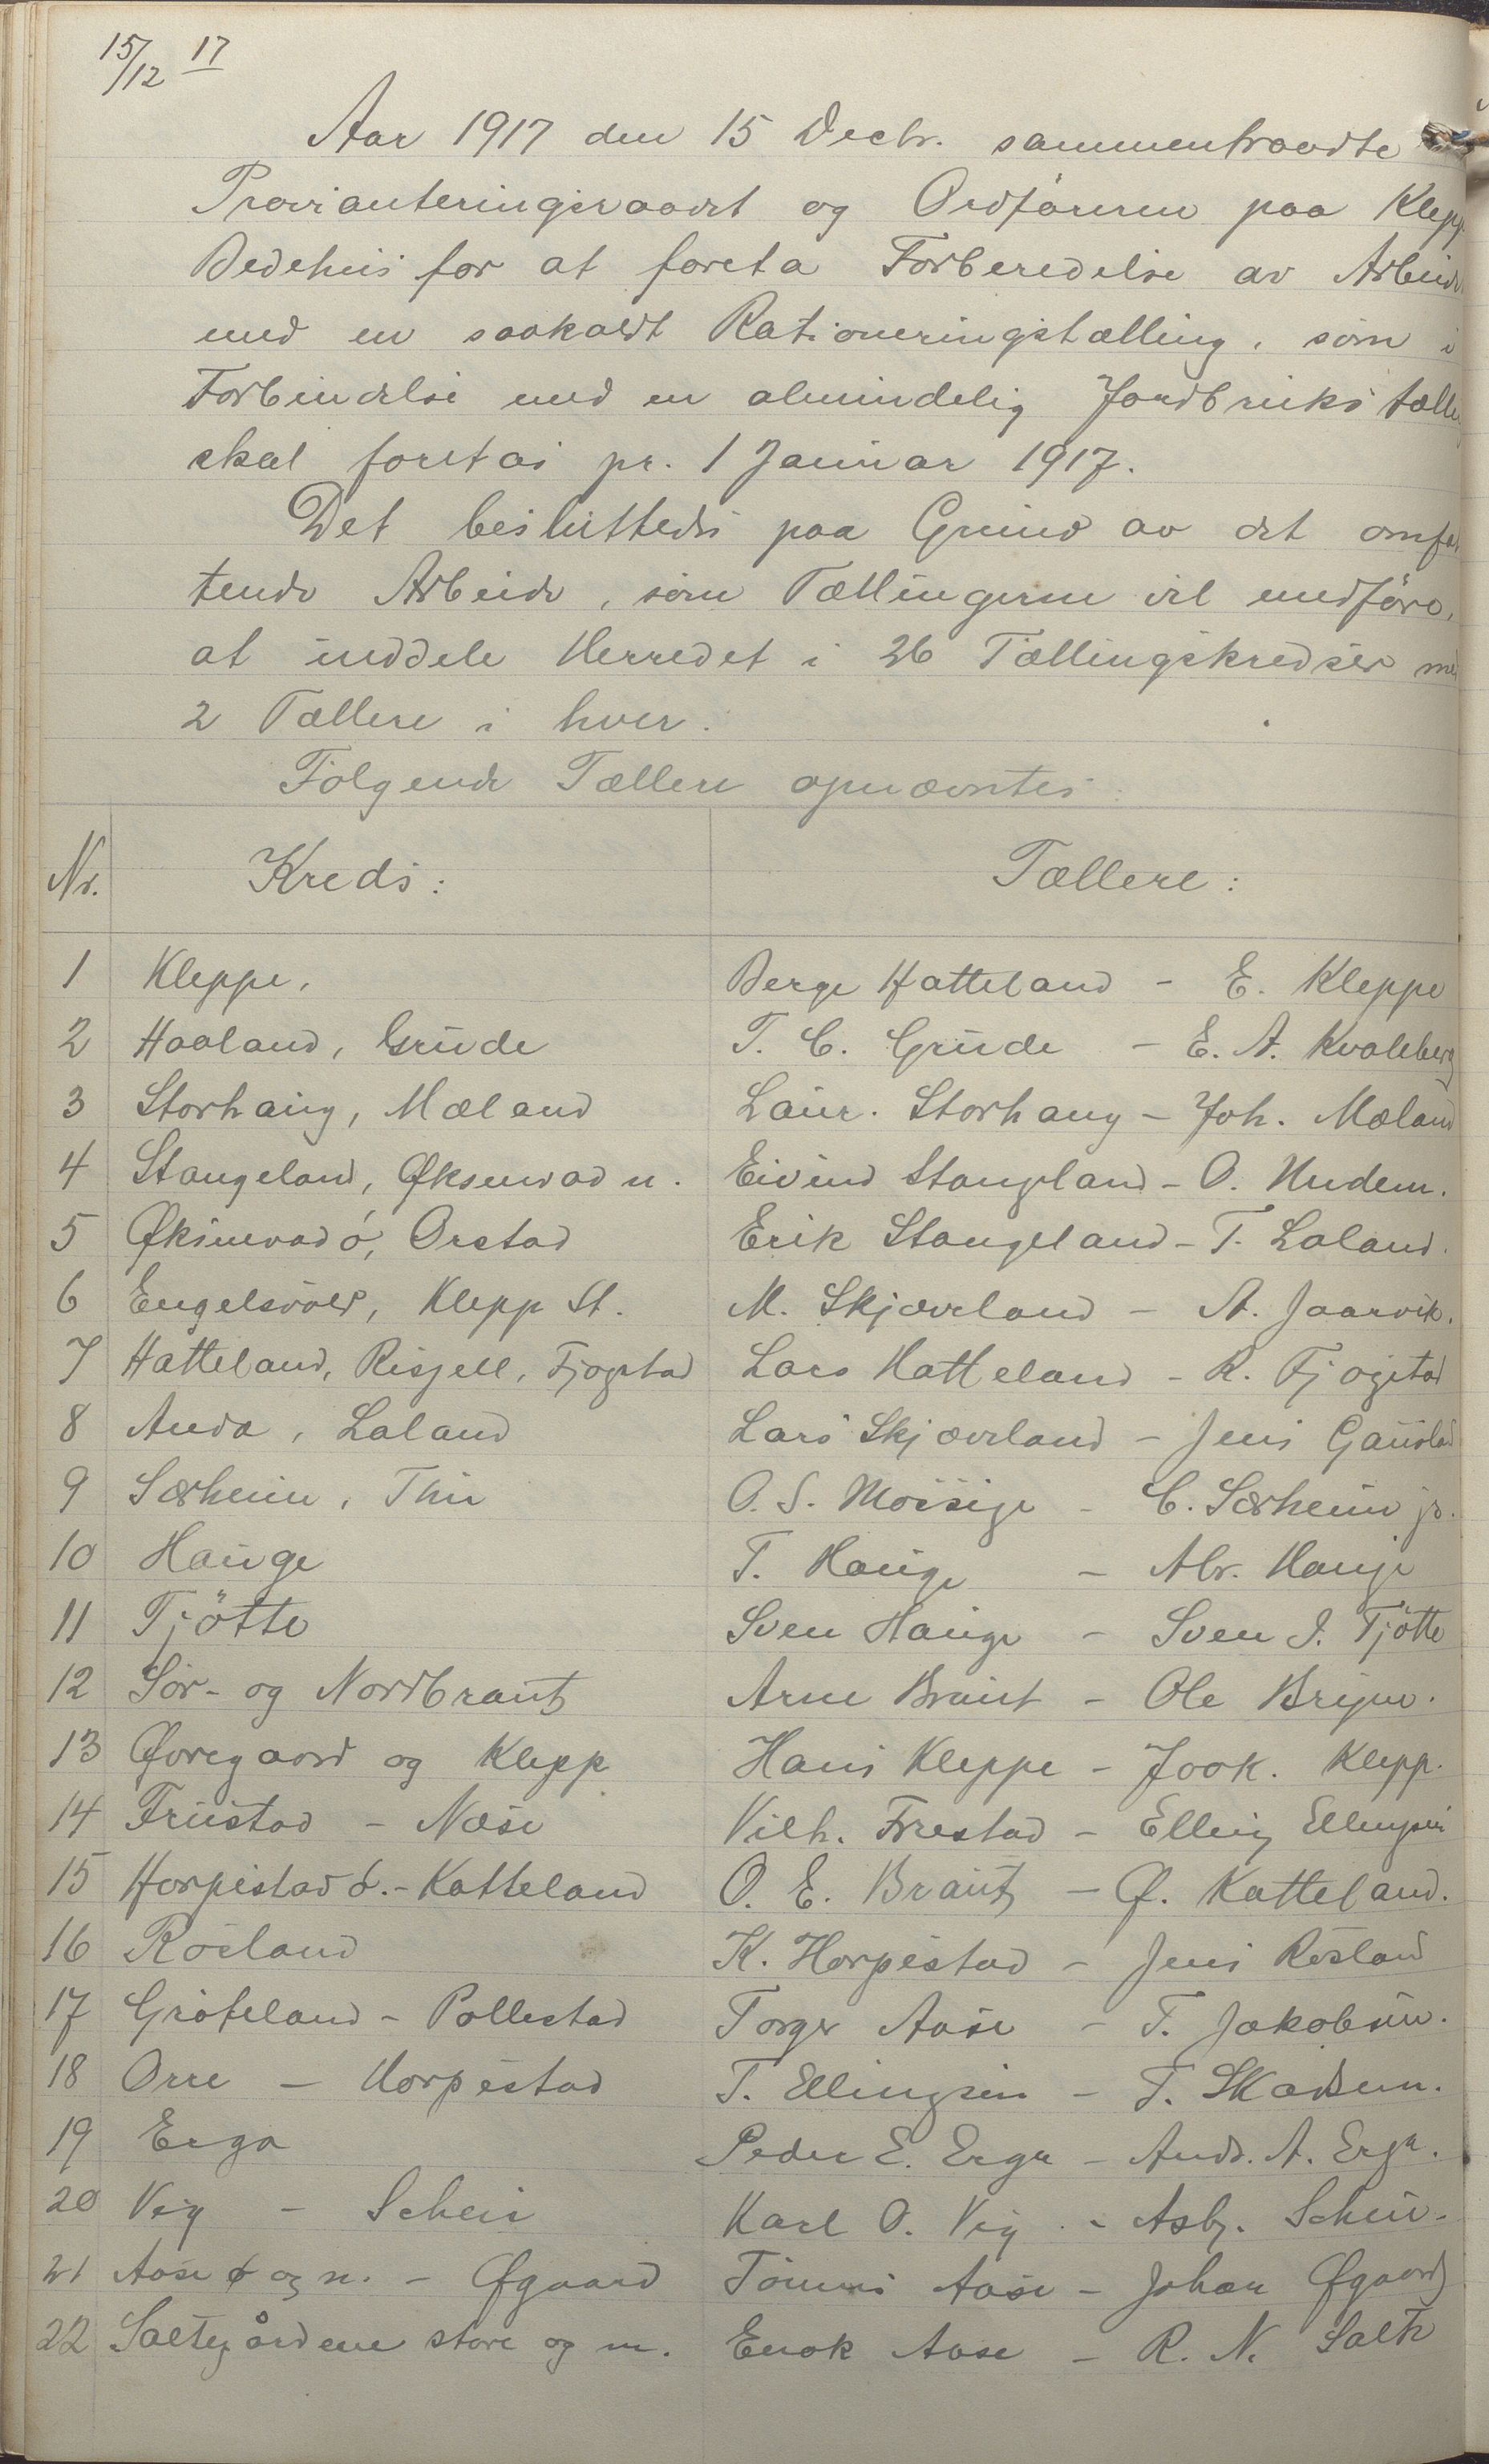 15/12 17
Aar 1917 den 15 Decbr. sammentraadte
Provianteringsraadet og Ordføreren paa Klepp
Bedehus for at foreta Forberedelse av Arbeide
med en saakaldt Rationeringstælling, som i
Forbindelse med en almindelig Jordbrukstælling
skal foretas pr. 1 Januar 1917.
Det besluttedes paa Grund av det omfat
tende Arbeide, som Tællingerne vil medføre,
at inddele Herredet i 26 Tællingskredser med
2 Tællere i hver.
Følgende Tællere opnævntes:
Nr. Kreds: Tællere:
1 Kleppe, Berge Hatteland - E. Kleppe
2 Haaland, Grude T. C. Grude - E. A. Kvaleberg
3 Storhaug, Mæland Laur. Storhaug - Joh. Mæland
4 Stangeland, Øksnevad n. Eivind Stangeland - O. Undem.
5 Øksnevad ø, Orstad Erik Stangeland - T. Laland.
6 Engelsvold, Klepp St. M. Skjæveland - A. Jaarvik.
7 Hatteland, Risjell, Fjogstad Lars Hatteland - R. Fjogstad
8 Anda, Laland Lars Skjæveland - Jens Gausland
9 Særheim, Thu O. S. Mossige - C. Særheim jr.
10 Hauge T. Hauge - Abr. Hauge
11 Tjøtte Sven Hauge - Sven J. Tjøtte
12 Sør- og Nordbraut Arne Braut - Ole Bryne.
13 Øvregaard og Klepp Hans Kleppe - Joak. Klepp.
14 Friestad - Næse Vilh. Friestad - Elling Ellingsen
15 Horpestad ø. - Katteland O. E. Braut - Ø. Katteland.
16 Rosland K. Horpestad - Jens Rosland
17 Grøteland - Pollestad Torger Aase - T. Jakobsen.
18 Orre - Horpestad T. Ellingsen - T. Skadsem.
19 Erga Peder E. Erga - Andr. A. Erga.
20 Vig - Scheie Karl O. Vig - Asbj. Scheie.
21 Aase ø og n. - Øgaard Tønnes Aase - Johan Øgaard
22 Saltegårdene store og m. Enok Aase - R. N. Salte